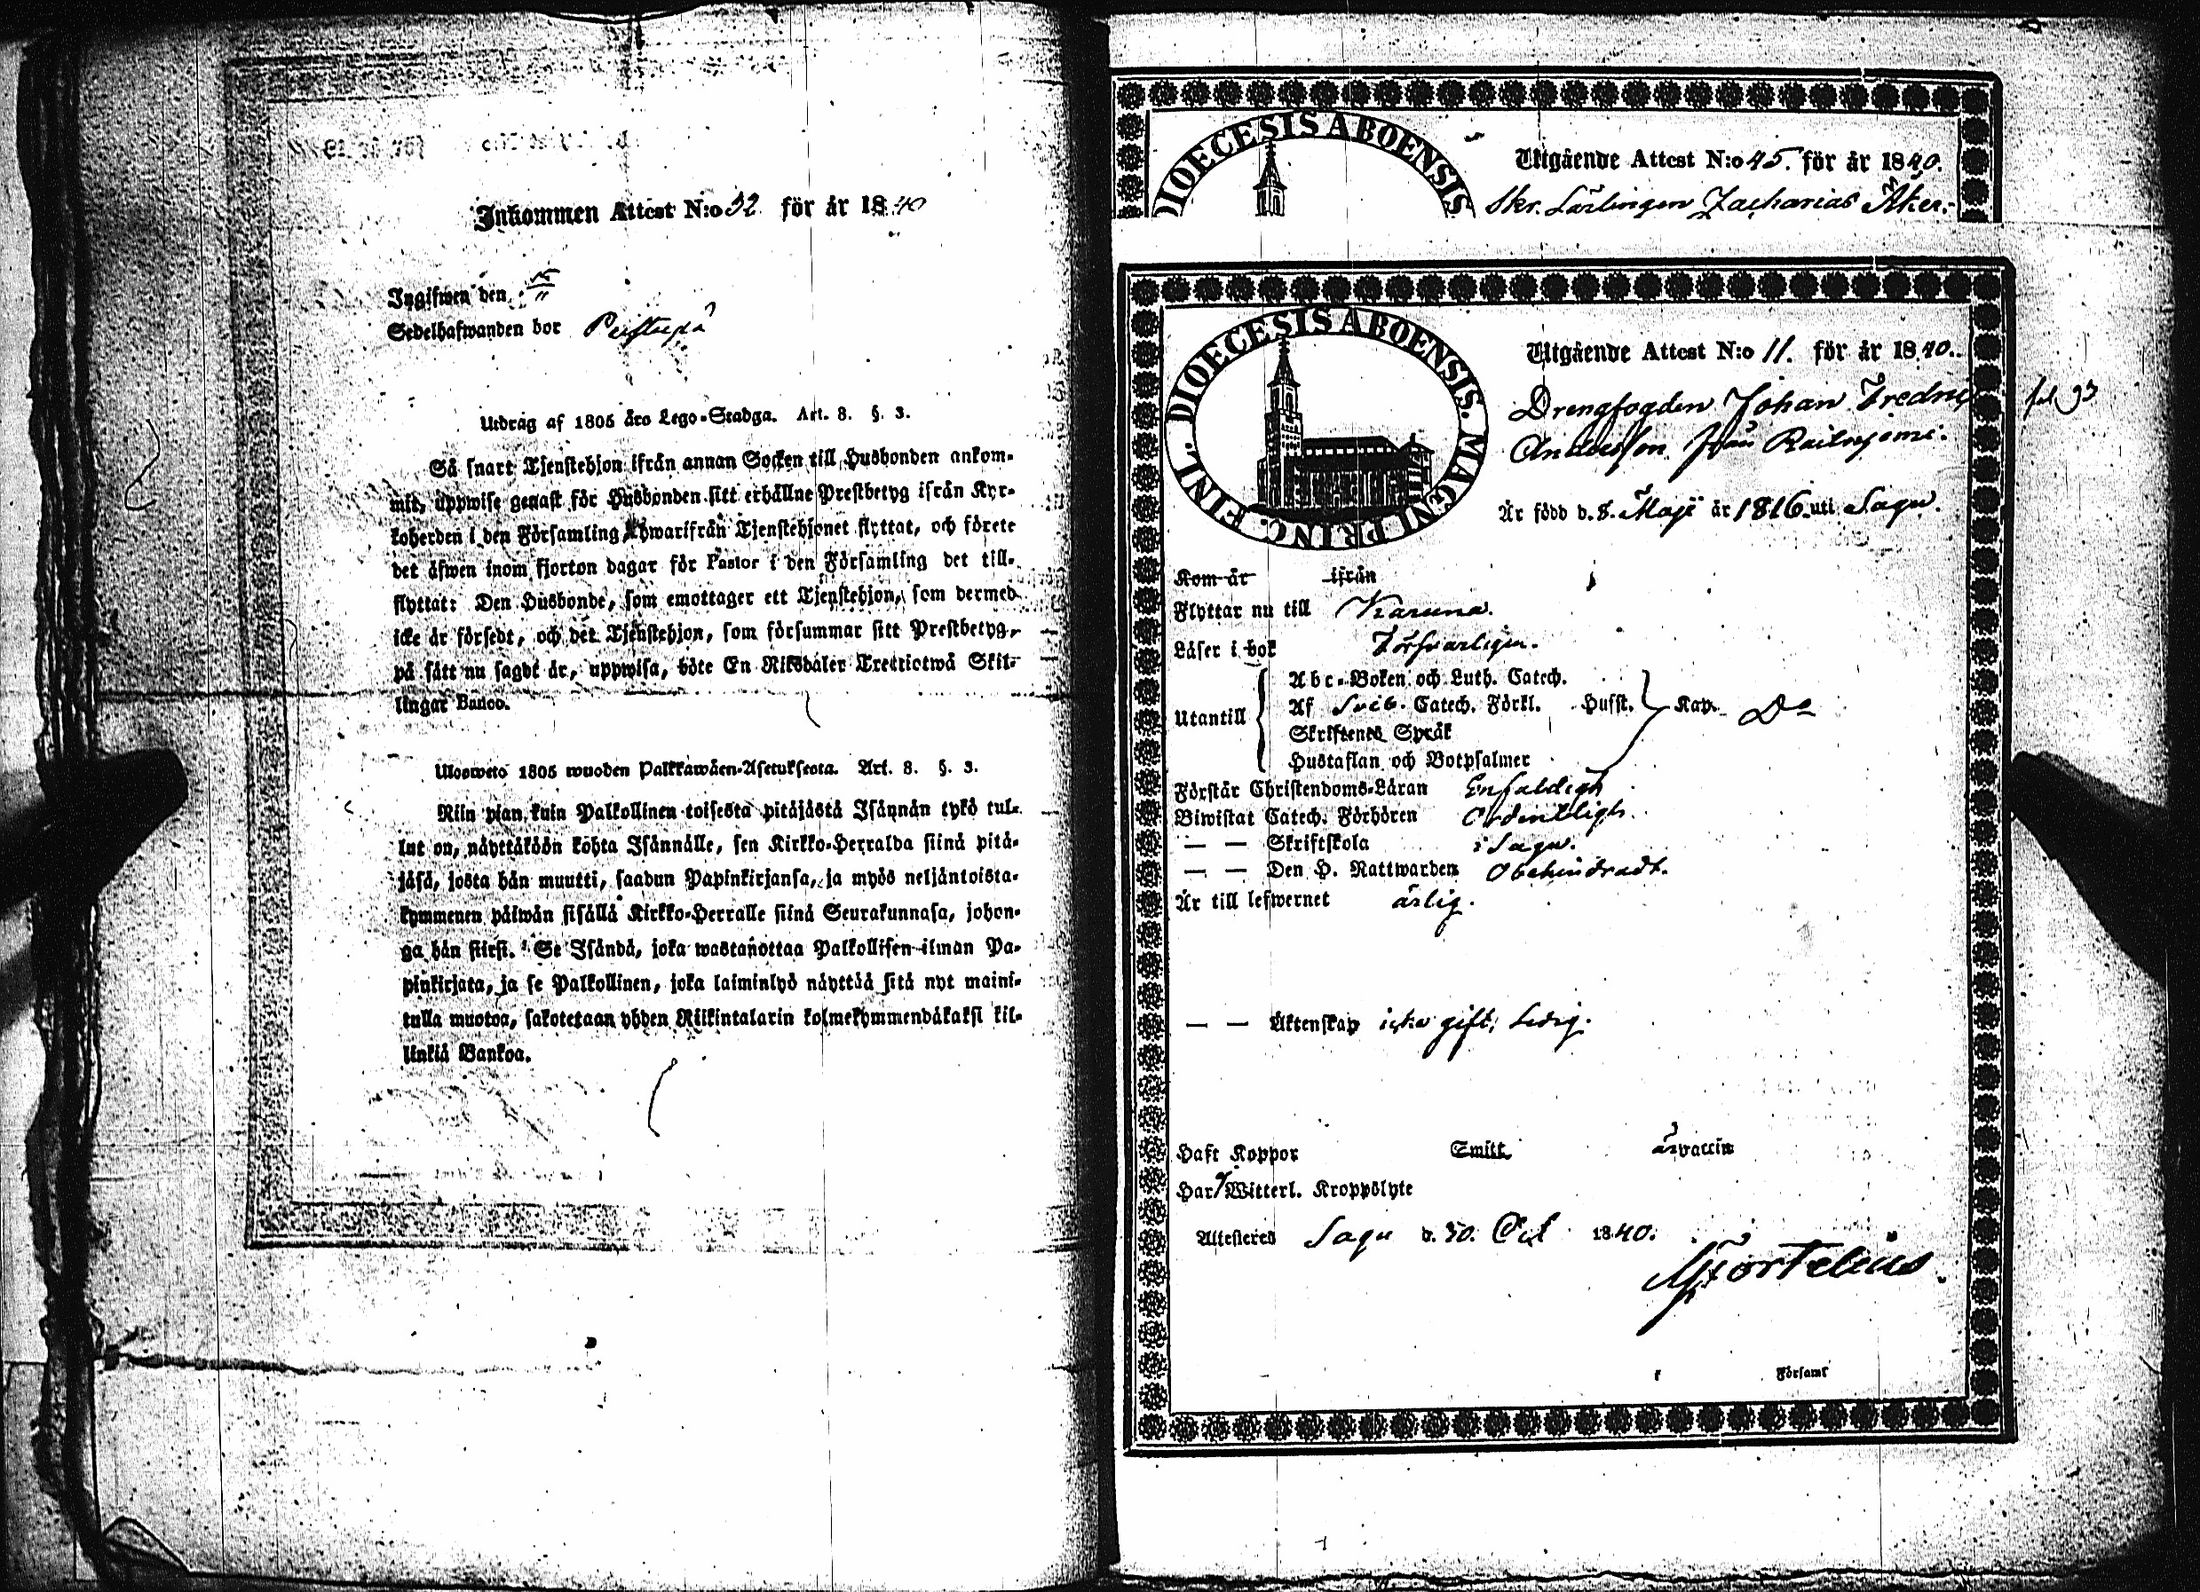 Inkommen Attest N:o 32 för år 1840
Ingifwen den
Sedelhafwanden bor
Utdrag af 1805 års Lego-Stadga. Art. 8. §. 3.
Så snart Tjenstehjon ifrån annan Socken till Husbonden ankom-
mit, uppwise genast för Husbonden sitt erhållne Prestbetyg ifrån Kyr-
koherden i den Församling hwarifrån Tjenstehjonet flyttat, och förete
det äfwen inom fjorton dagar för Pastor i den Församling det till-
flyttat: Den Husbonde, som emottager ett Tjenstehjon, som dermed
icke är försedt, och det Tjenstehjon, som försummar sitt Prestbetyg,
på sätt nu sagdt är, uppwisa, böte En Riksdaler Trettiotwå Skil-
lingar Banco.
Ulosweto 1805 wuoden Palkkawäen-Asetuksesta. Art. 8. §. 3.
Niin pian kuin Palkollinen toisesta pitäjästä Isännän tykö tul-
lut on, näyttäköön kohta Isännälle, sen Kirkko-Herralda siinä pitä-
jäsä, josta hän muutti, saadun Papinkirjansa, ja myös neljäntoista-
kymmenen päiwän sisällä Kirkko-Herralle siinä Seurakunnasa, johon-
ga hän siirsi. Se Isändä, joka wastanottaa Palkollisen ilman Pa-
pinkirjata, ja se Palkollinen, joka laiminlyö näyttää sitä nyt maini-
tulla muotoa, sakotetaan yhden Riikintalarin kolmekymmendäkaksi kil-
linkiä Bankoa.
DIOECESIS ABOENSIS
Utgående Attest N:o 45. för år 1840.
Skr. Lärlingen Zacharias Åker-
DIOECESIS ABOENSIS. MAGNI PRINC. FINL.
Utgående Attest N:o 11. för år 1840.
Drengfogden Johan Fredric fol 93
Andersson från Railnjemi.
Är född d. 8. Maji år 1816 uti Sagu.
Kom år ifrån
Flyttar nu till Karuna.
Läser i bok Försvarligen.
Utantill
Abc-Boken och Luth. Catech.
Af Sveb. Catech. Förkl. Husst. Kap. Do
Skriftenes Språk
Hustaflan och Botpsalmer
Förstår Christendoms-Läran Enfaldigt
Biwistat Catech. Förhören Ordentligt.
— — Skriftskola i Sagu.
— — Den H. Nattwarden Obehindradt.
Är till lefwernet ärlig.
— — Äktenskap icke gift, ledig.
Haft Koppor Smitt. är vaccin
Har Witterl. Kroppslyte
Attesteres Sagu d. 30. Oct 1840.
Församl